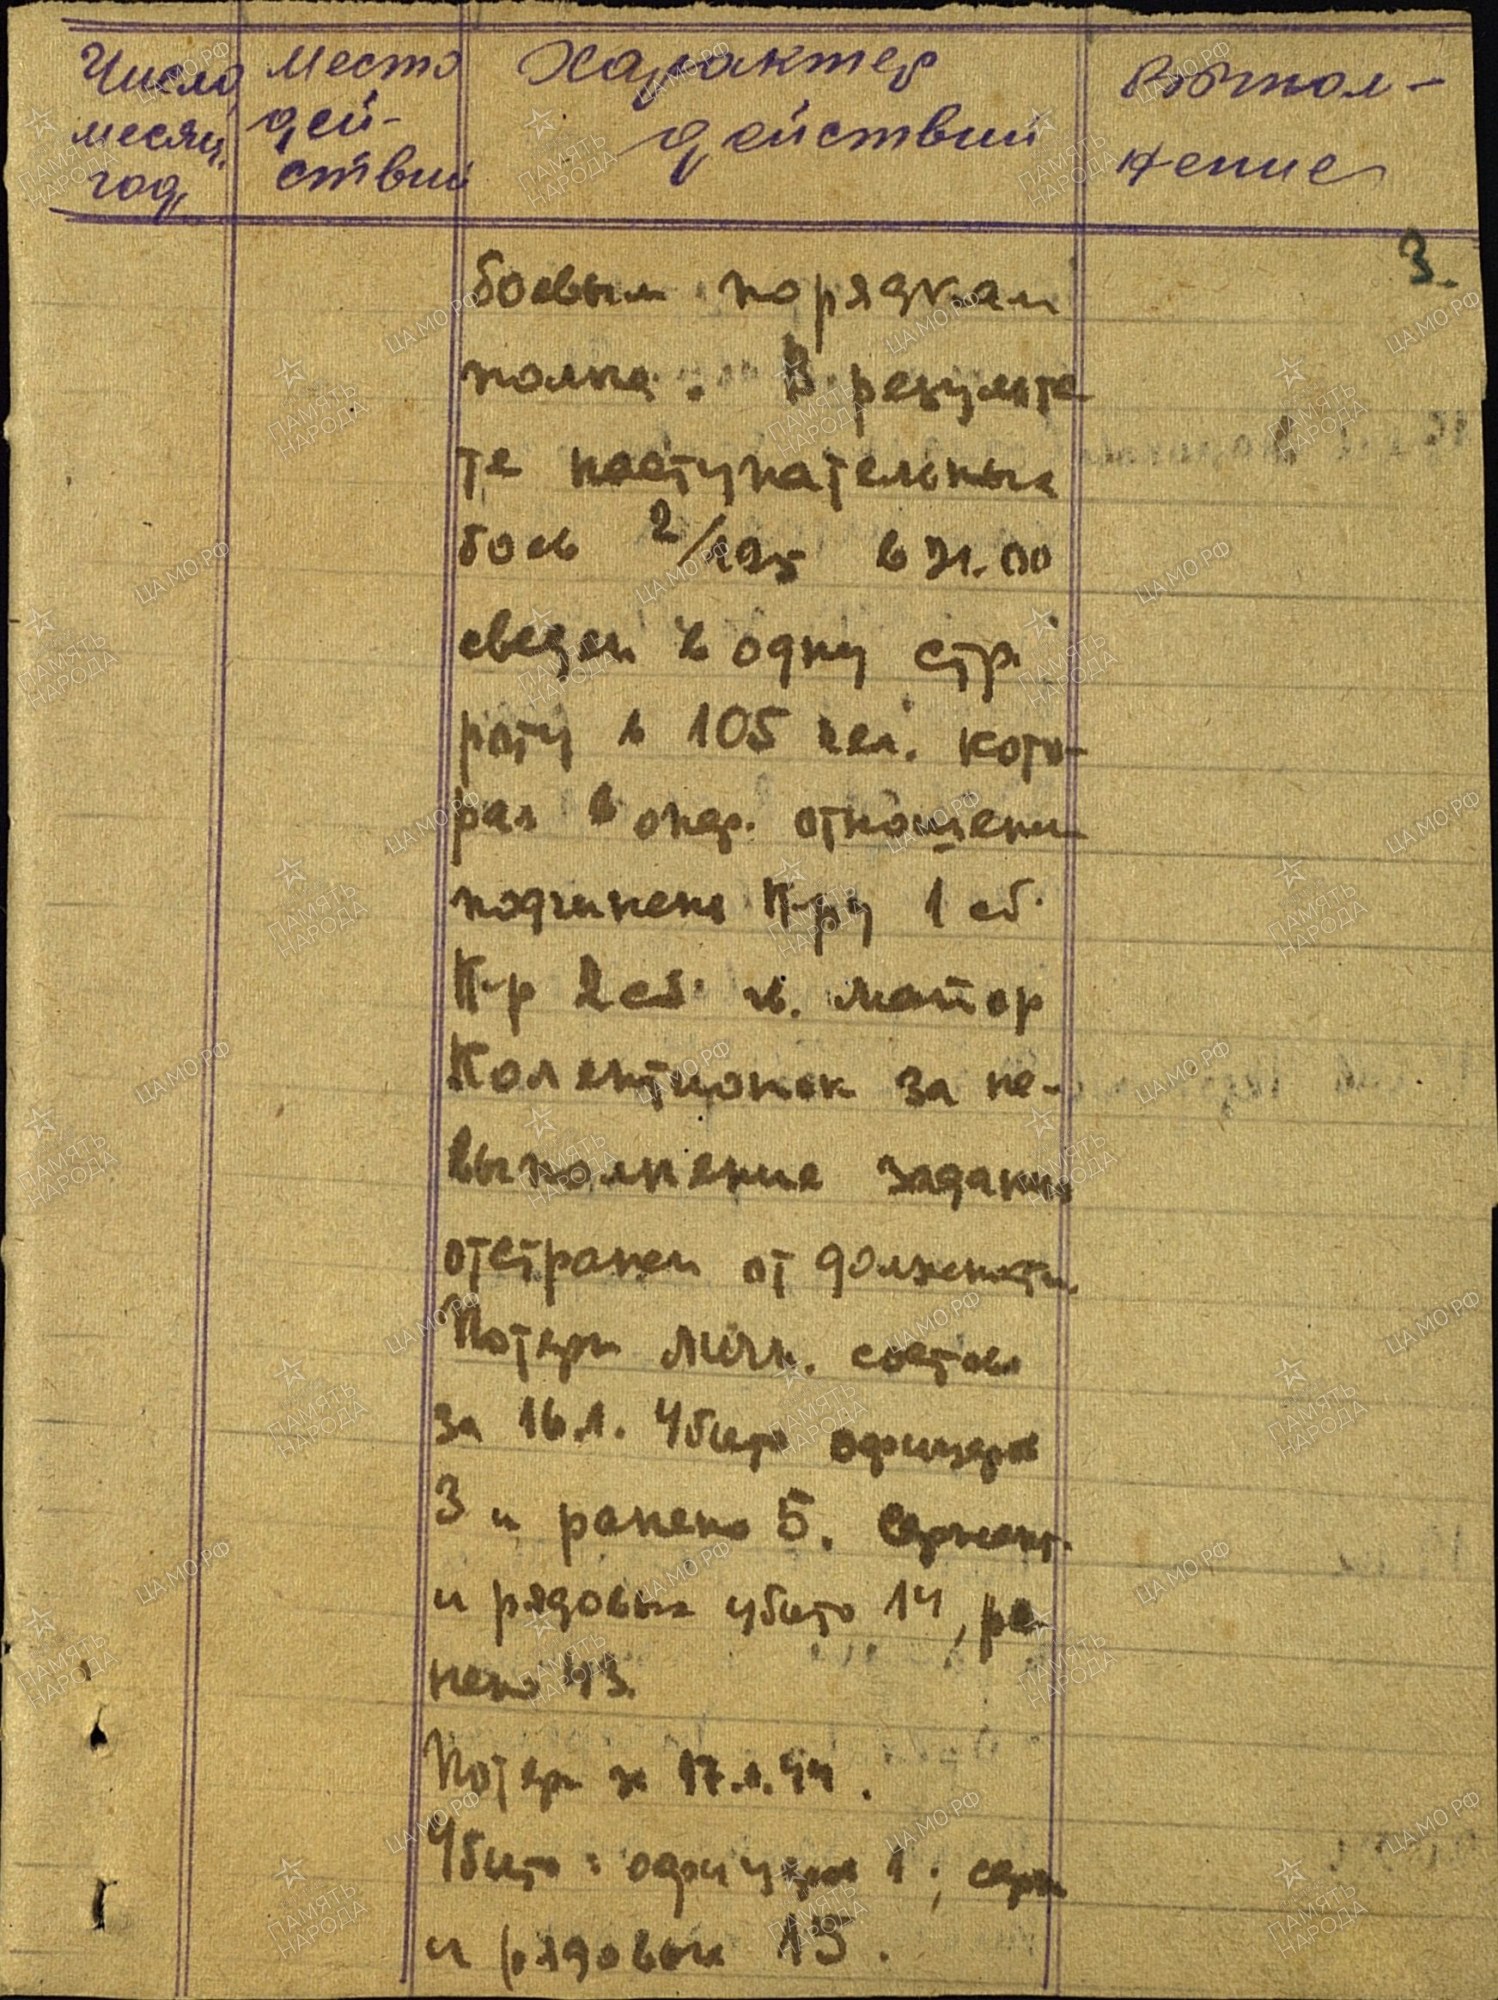 Число, месяц, год
Место дей-ствий
Характер действий
Выпол-нение
3.
боевым порядкам
полка. В результа
те наступательных
боев 2/195 в 21.00
сведен в одну стр.
роту в 105 чел. кото-
рая в опер. отношени
подчинена К-ру 1 сб.
К-р 2 сб гв. майор
за не-
выполнение задания
отстранен от должности.
Потери личн. состава
за 16.1. Убито офицеров
3 и ранено 5. Сержант.
и рядовых убито 14, ра-
нено 43.
Потери за 17.1.44.
Убито: офицеров 1; серж
и рядовых 15.